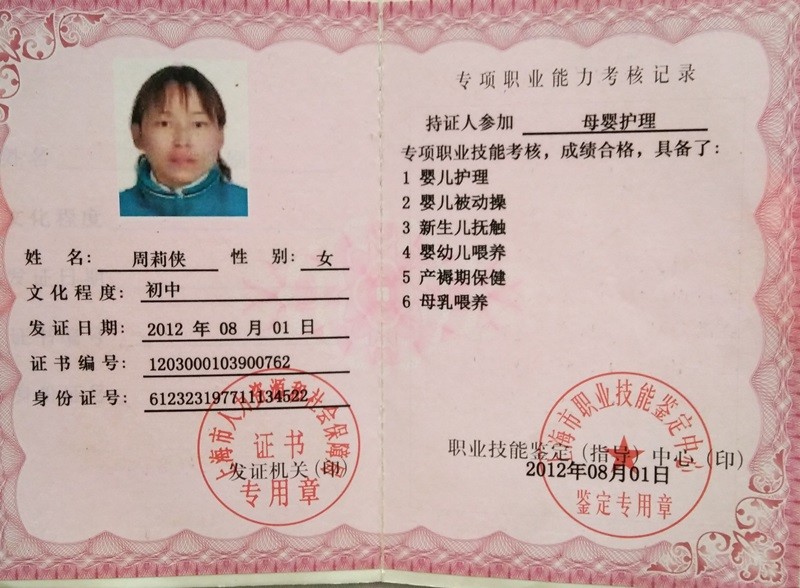 姓 名: 周莉侠 性 别: 女
文化程度: 初中
发证日期: 2012 年 08 月 01 日
证书编号: 1203000103900762
身份证号: 612323197711134522
上海市人力资源和社会保障局
证书
专用章
发证机关(印)
专项职业能力考核记录
持证人参加 母婴护理
专项职业技能考核，成绩合格，具备了：
1 婴儿护理
2 婴儿被动操
3 新生儿抚触
4 婴幼儿喂养
5 产褥期保健
6 母乳喂养
上海市职业技能鉴定中心
职业技能鉴定(指导)中心(印)
2012年08月01日
鉴定专用章